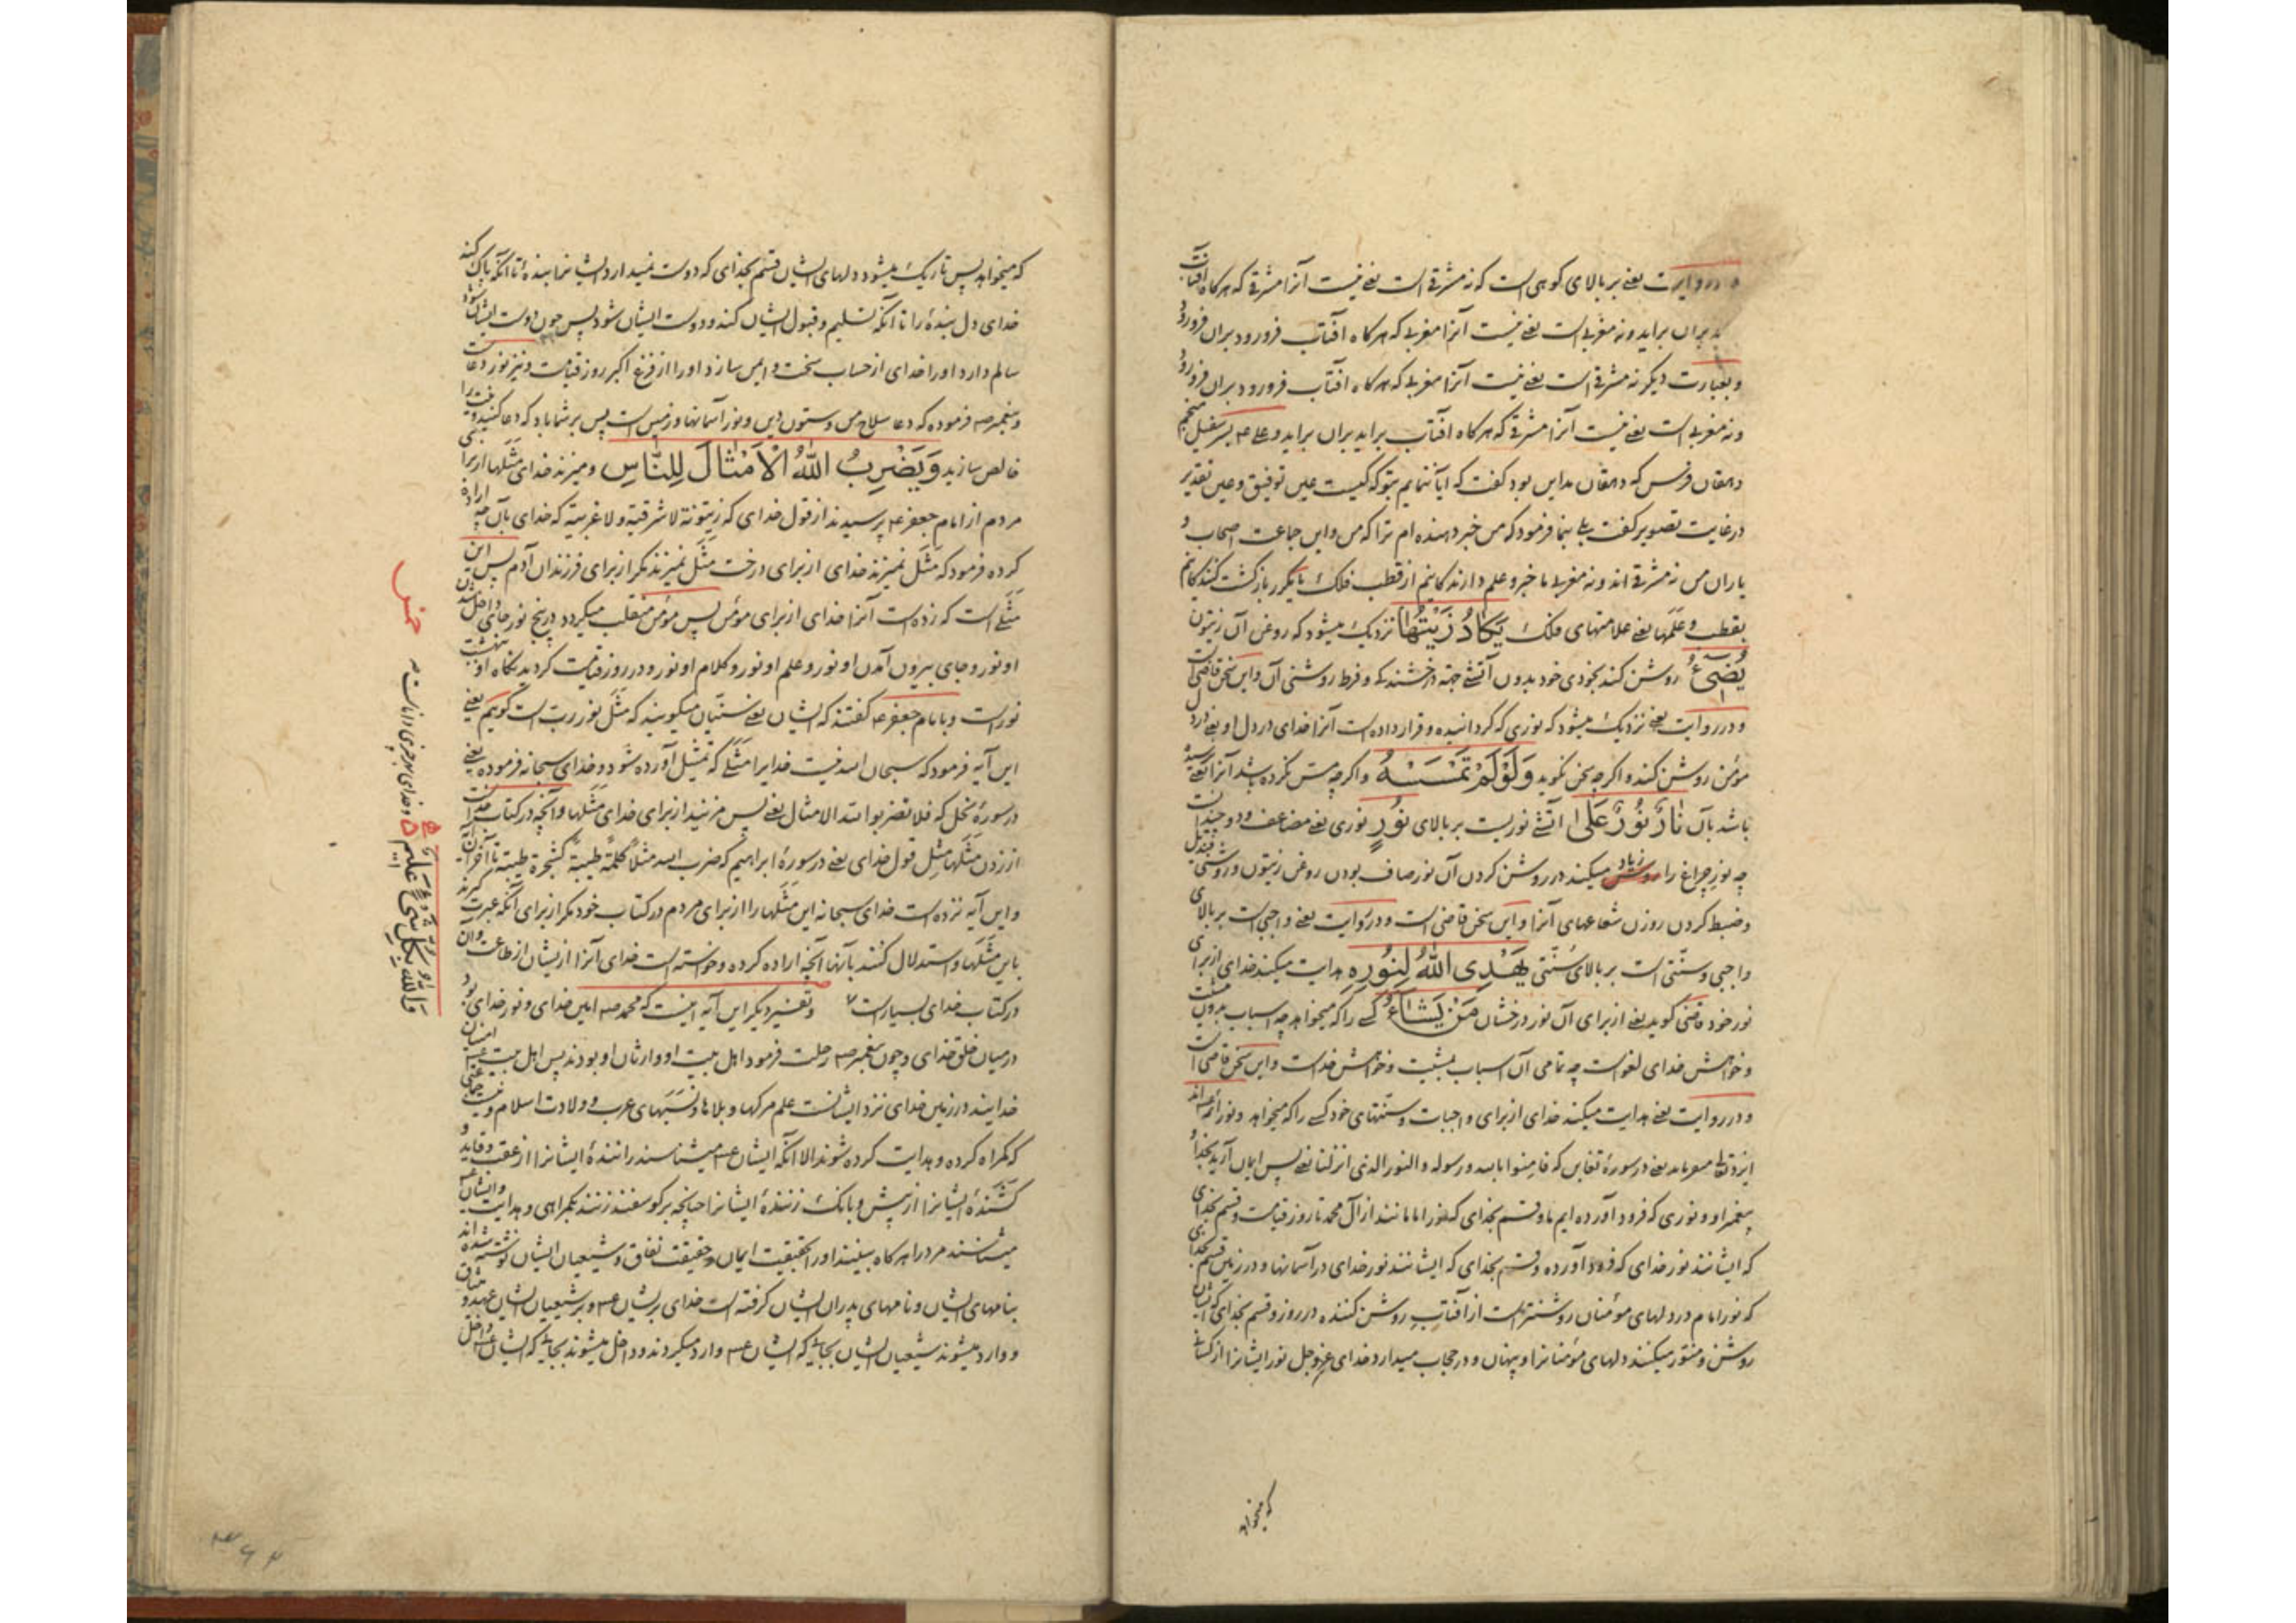 و در روایت یعنی بر بالای کوهی است که نه مشرقی است یعنی نیست آنرا مشرقی که هرکاه آفتاب
بران براید و نه مغربی است یعنی نیست آنرا مغربی که هرکاه آفتاب فرو رود بران فرو رود
و بعبارت دیکر نه مشرقی است یعنی نیست آنرا مغربی که هرکاه افتاب فرو رود بران فرو رود
و نه مغربی است یعنی نیست آنرا مشرقی که هرکاه افتاب براید بران براید و علی ع م بسرسفیل منجم
دهقان فرس که دهقان مداین بود کفت که ایا ننمایم بتو که کیست عین توفیق و عین تقدیر
در غایت تصویر کفت بلی بنما فرمود که من خبر دهنده ام ترا که من و این جماعت اصحاب و
یاران من نه مشرقی اند و نه مغربی ما خبر و علم دارندکانیم از قطب فلک بازکشت کنندکانیم
بقطب و علمها یعنی علامتهای فلک یَكَادُ زَیْتُهَا نزدیک میشود که روغن آن زیتون
یُضِیءُ روشن کند بخودی خود بدون آتشی جهة درخشندکی و فرط روشنی آن و این سخن قاضی است
و در روایت یعنی نزدیک میشود که نوری که کردانیده و قرار داده است آنرا خدای در دل او یعنی در دل
مؤمن روشن کند و اکرچه سخن نکوید وَلَوْلَمْ تَمْسَسْهُ و اکرچه مس نکرده باشد آنرا یعنی نرسیده
باشد بآن نَارٌ نُورٌ عَلَی آتشی نوریست بر بالای نُورٍ نوری یعنی مضاعف و دو چندانست
چه نور چراغ را زیاد میکند در روشن کردن آن نور صاف بودن روغن زیتون و روشنی قندیل
و ضبط کردن روزن شعاعهای آنرا و این سخن قاضی است و در روایت یعنی واجبی است بر بالای
واجبی و سنتی است بر بالای سنتی یَهْدِی اللّهُ لِنُورِهِ هدایت میکند خدای از برای
نور خود قاضی کوید یعنی از برای آن نور درخشان مَنْ یَشَاءُ کسی را که میخواهد چه اسباب بدون مشیت
و خواهش خدای لغو است چه تمامی آن اسباب بمشیت و خواهش خداست و این سخن قاضی است
و در روایت یعنی هدایت میکند خدای از برای واجبات و سنتهای خود کسی را که میخواهد و نور ائمه اند
یعنی در سورهٔ تغابن که فامنوا بالله و رسوله و النور الذی انزلنا یعنی پس ایمان آرید بخدا و
پیغمبر او و نوری که فرود آورده ایم ما و قسم بخدای که نور امامانند از آل محمد تا روز قیامت و قسم بخدای
که ایشانند نور خدای که فرود آورده و قسم بخدای که ایشانند نور خدای در آسمانها و در زمین قسم بخدای
که نور امام در دلهای مؤمنان روشنتر است از آفتاب روشن کننده در روز و قسم بخدای که ایشان
روشن و منور میکنند دلهای مؤمنانرا و پنهان و در حجاب میدارد خدای عز و جل نور ایشانرا از کسانی
که میخواهد
که میخواهد پس تاریک میشود دلهای ایشان قسم بخدای که دوست نمیدارد ایشانرا بندهٔ تا آنکه پاک کند
خدای دل بندهٔ را تا آنکه تسلیم و قبول ایشان کند و دوست ایشان شود پس چون دوست ایشان شود
سالم دارد اورا خدای از حساب سخت و ایمن سازد اورا از فزع اکبر روز قیامت و نیز نور دعاست
و پیغمبر ص م فرموده که دعا سلاح مؤمن و ستون دین و نور آسمانها و زمین است پس بر شما باد که دعا کنید و نیت را
خالص سازید وَیَضْرِبُ اللّهُ الْاَمْثَالَ لِلنَّاسِ و میزند خدای مثلها از برای
مردم از امام جعفر ع م پرسیدند از قول خدای که زیتونة لا شرقیة و لا غربیة که خدای بآن چه اراده
کرده فرمود که مثل نمیزند خدای از برای درخت مثل نمیزند مکر از برای فرزندان آدم پس این
مثلی است که زده است آنرا خدای از برای مؤمن پس مؤمن منقلب میکردد در پنج نور جای داخل شدن
او نور و جای بیرون آمدن او نور و علم او نور و کلام او نور و در روز قیامت کردیدنگاه او ببهشت
نور است و بامام جعفر ع م کفتند که ایشان یعنی سنیان میکویند که مثل نور رب است کوئیم یعنی
این آیه فرمود که سبحان الله نیست خدایرا مثلی که تمثیل آورده شود و خدای سبحانه فرموده یعنی
در سورهٔ نحل که فلا تضربوا لله الامثال یعنی پس مزنید از برای خدای مثلها و آنچه در کتاب خداست
از زدن مثلها مثل قول خدای یعنی در سورهٔ ابراهیم که ضرب الله مثلاً کلمةً طیبةً کشجرة طیبة تا آخر آن
و این آیه نزده است خدای سبحانه این مثلها را از برای مردم در کتاب خود مکر از برای آنکه عبرت کیرند
باین مثلها و استدلال کنند بآنها آنچه اراده کرده و خواسته است خدای آنرا از ایشان از طاعت و آن
در کتاب خدای بسیار است و تفسیر دیکر این آیه اینست که محمد ص م امین خدای و نور خدای بود
در میان خلق خدای و چون پیغمبر ص م رحلت فرمود اهل بیت او وارثان او بودند پس اهل بیت ع م امینان
خدایند در زمین خدای نزد ایشانست علم مرکها و بلاها و نسبهای عرب و ولادت اسلام و نیست جماعتی
که کمراه کرده و هدایت کرده شوند الا انکه ایشان ع م میشناسند رانندهٔ ایشانرا از عقب و قاید و
کشندهٔ ایشانرا از پیش و بانک زنندهٔ ایشانرا چنانچه بر کوسفند زنند بکمراهی و هدایت و ایشان ع م
میشناسند مرد را هرکاه ببینند اورا بحقیقت ایمان و حقیقت نفاق و شیعیان ایشان نوشته شده اند
بنامهای ایشان و نامهای پدران ایشان کرفته است خدای بر ایشان ع م و بر شیعیان ایشان عهد و میثاق
و وارد میشوند شیعیان ایشان بجایی که ایشان ع م وارد میکردند و داخل میشوند بجایی که ایشان ع م داخل
وَاللّهُ بِكُلِّ شَیْءٍ عَلِیمٌ و خدای بهر چیزی داناست
۳۶۲